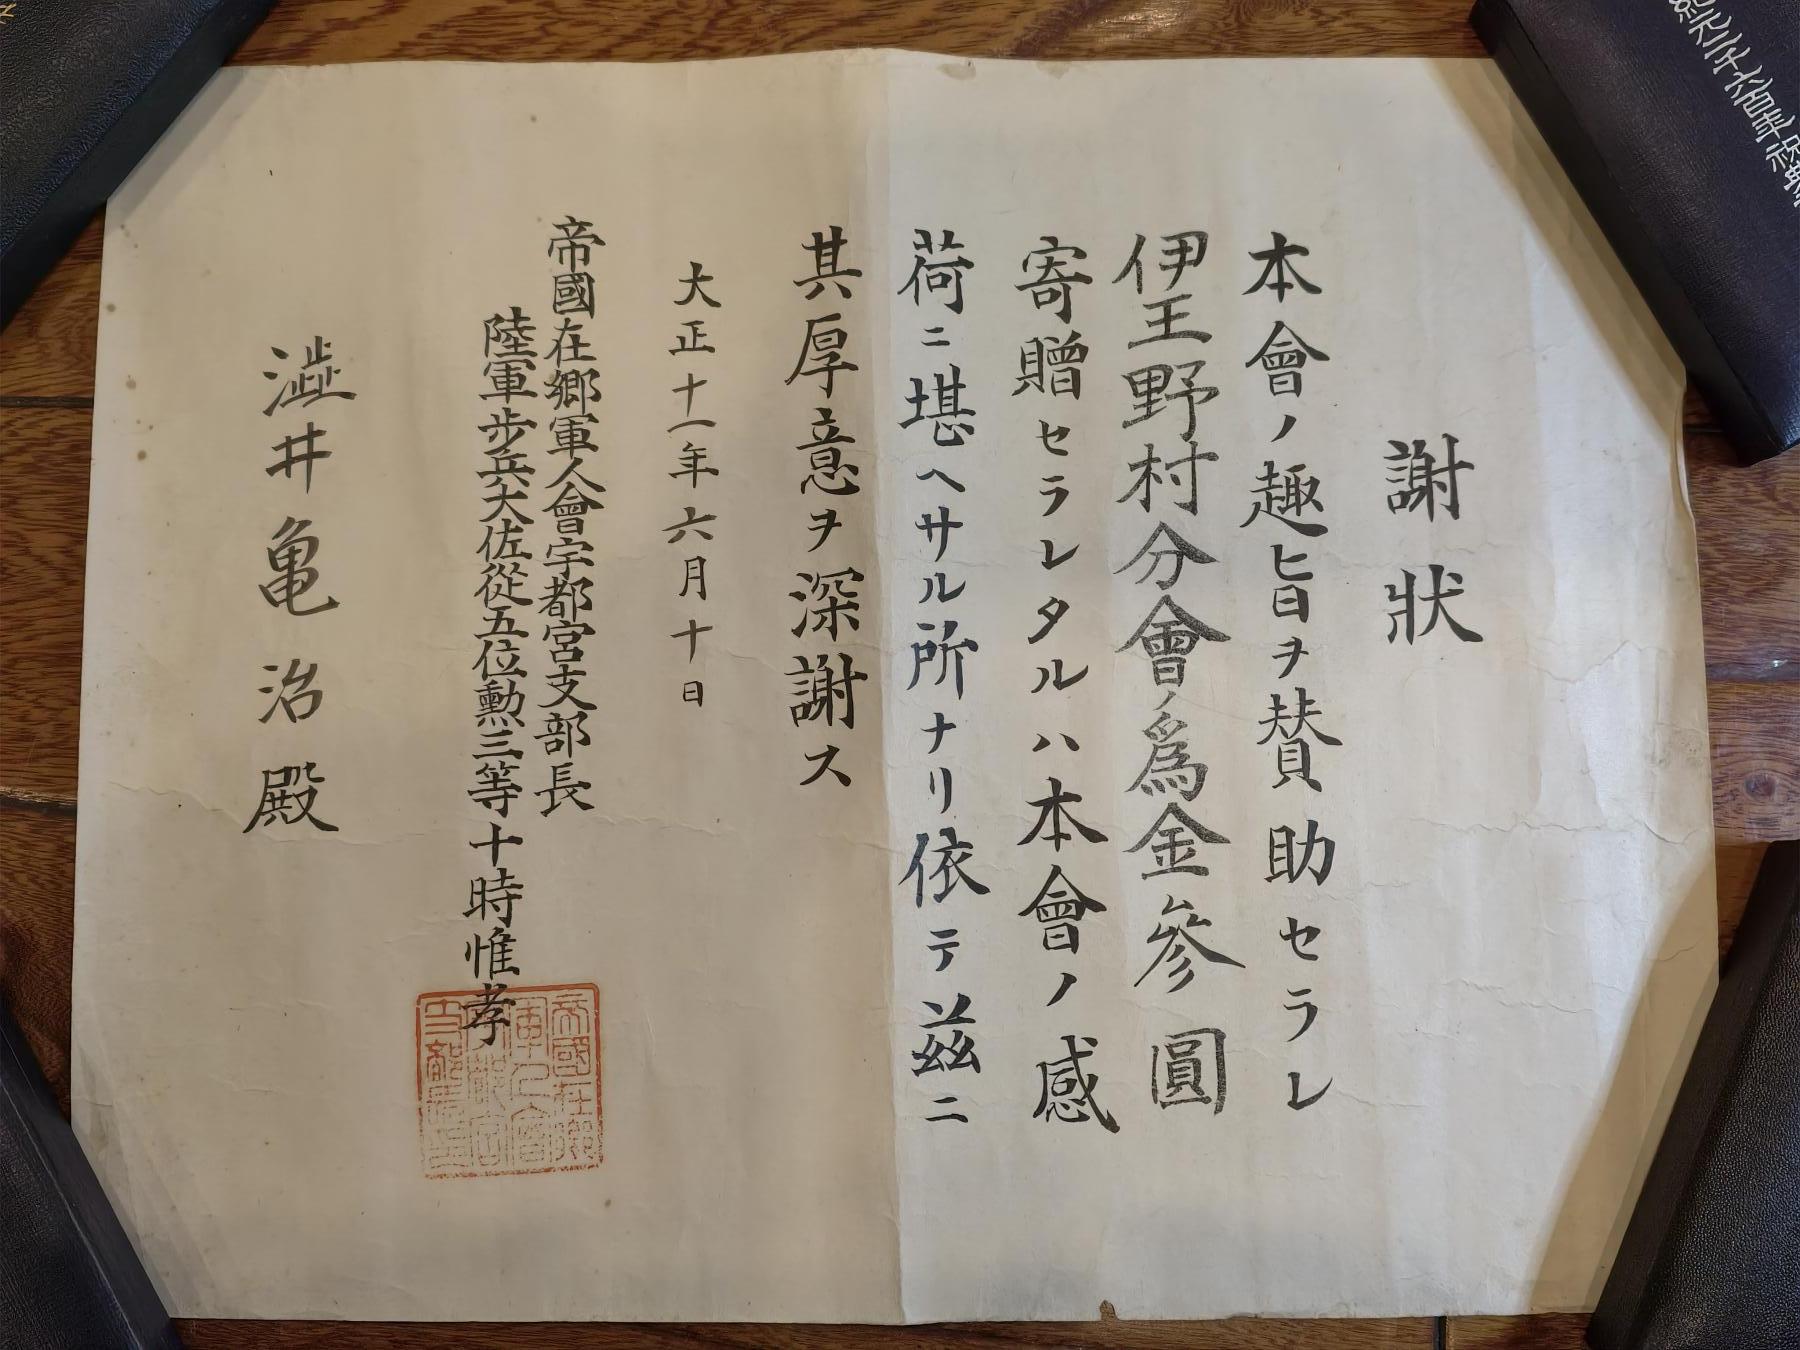 謝狀
本會ノ趣旨ヲ賛助セラレ
伊王野村分會ノ爲金參圓
寄贈セラレタルハ本會ノ感
荷ニ堪ヘサル所ナリ依テ茲ニ
其厚意ヲ深謝ス
大正十一年六月十日
帝國在郷軍人會宇都宮支部長
陸軍步兵大佐從五位勲三等十時惟孝
澁井亀治殿
帝國在郷
軍人會
都宮
支部長印
元二千六百年祝典